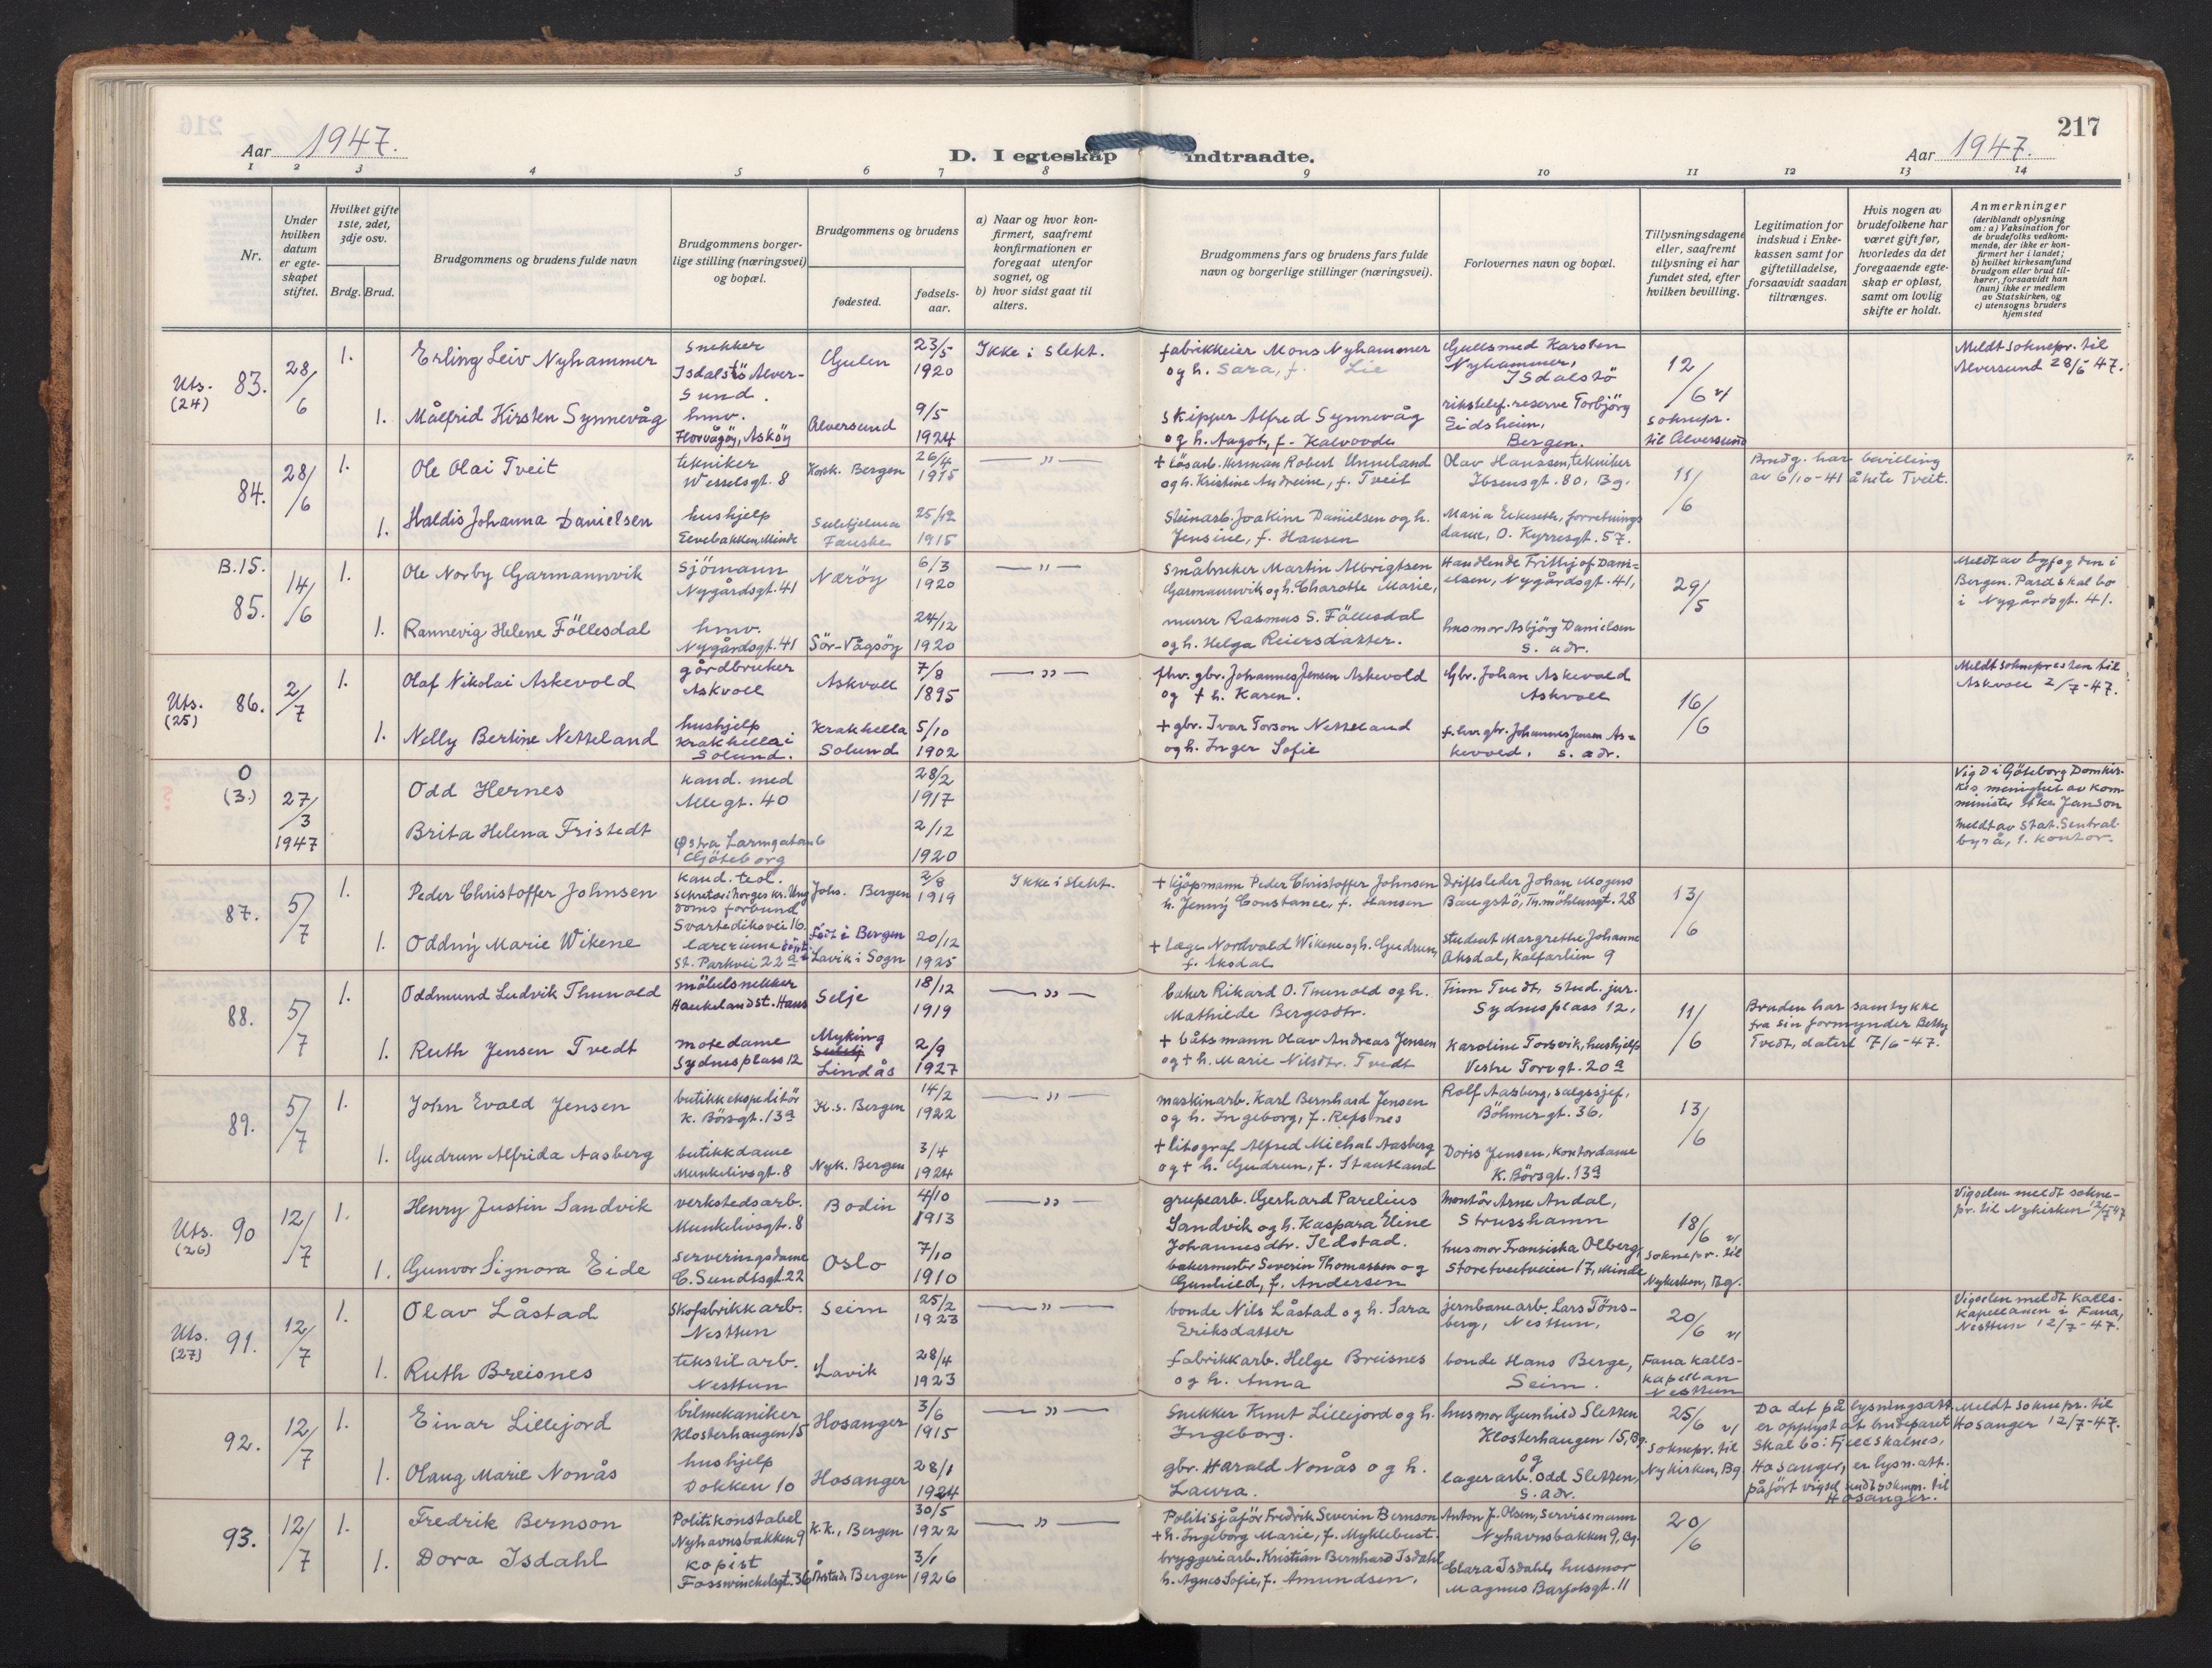 217
Aar 1947.
D. I egteskap indtraadte.
Aar 1947.
1 2 3 4 5 6 7 8 9 10 11 12 13 14
Nr.
Under hvilken datum er egteskapet stiftet.
Hvilket gifte 1ste, 2det, 3dje osv.
Brdg. Brud.
Brudgommens og brudens fulde navn
Brudgommens borgerlige stilling (næringsvei) og bopæl.
Brudgommens og brudens
fødested.
fødselsaar.
a) Naar og hvor konfirmert, saafremt konfirmationen er foregaat utenfor sognet, og
b) hvor sidst gaat til alters.
Brudgommens fars og brudens fars fulde navn og borgerlige stillinger (næringsvei).
Forlovernes navn og bopæl.
Tillysningsdagene eller, saafremt tillysning ei har fundet sted, efter hvilken bevilling.
Legitimation for indskud i Enkekassen samt for giftetilladelse, forsaavidt saadan tiltrænges.
Hvis nogen av brudefolkene har været gift før, hvorledes da det foregaaende egteskap er opløst, samt om lovlig skifte er holdt.
Anmerkninger (deriblandt oplysning om: a) Vaksination for de brudefolks vedkommende, der ikke er konfirmert her i landet; b) hvilket kirkesamfund brudgom eller brud tilhører, forsaavidt han (hun) ikke er medlem av Statskirken, og c) utensogns bruders hjemsted
Uts. (24) 83. 28/6
1. Erling Leiv Nyhammer
Snekker Isdalstö Alversund.
Gulen
23/5 1920
Ikke i slekt.
fabrikkeier Mons Nyhammer og h. Sara, f. Lie
Gullsmed Karsten Nyhammer, Isdalstö
12/6 v/ soknepr. til Alversund
Meldt soknepr. til Alversund 28/6 47.
1. Målfrid Kirsten Synnevåg
hmv. Florvågöy, Asköy
Alversund
9/5 1924
Skipper Alfred Synnevåg og h. Aagot, f.
rikstelef. reserve Torbjörg Eidsheim, Bergen.
84. 28/6
1. Ole Olai Tveit
tekniker Wesselsgt. 8
Korsk. Bergen
26/4 1915
— " —
+ Løsarb. Herman Robert Unneland og h. Kristine Andreine, f. Tveit
Olav Hanssen, tekniker Ibsensgt. 80, Bg.
11/6
Brudg. har bevilling av 6/10-41 å hete Tveit.
1. Haldis Johanna Danielsen
hushjelp Eevebakken, Minde
Sulitjelma Fauske
25/12 1915
Steinarb. Joakim Danielsen og h. Jensine, f. Hansen
Maria Eikeseth, forretningsdame, O. Kyrresgt. 57.
B.15. 85. 14/6
1. Ole Norby Garmannvik
Sjömann Nygårdsgt. 41
Nærøy
6/3 1920
— " —
Småbruker Martin Albrigtsen Garmannvik og h. Charotte Marie,
Handlende Frithjof Danielsen, Nygårdsgt. 41,
29/5
Meldt av byfogden i Bergen. Par skal bo i Nygårdsgt. 41.
1. Rannevig Helene Föllesdal
hmv. Nygårdsgt. 41
Sör-Vågsöy
24/12 1920
murer Rasmus S. Föllesdal og h. Helga Reiersdatter.
husmor Asbjörg Danielsen s. adr.
Uts. (25) 86. 2/7
1. Olaf Nikolai Askevold
gårdbruker Askvoll
Askvoll
7/8 1895
— " —
fhv. gbr. Johannes Jensen Askevold og + h. Karen.
Gbr. Johan Askevold Askvoll
16/6
Meldt soknepresten til Askvoll 2/7-47.
1. Nelly Bertine Netteland
hushjelp Krakhella i Solund.
Krakhella Solund
5/10 1902
+ gbr. Ivar Torson Netteland og h. Inger Sofie
f. hv. gbr. Johannes Jensen Askevold, s. adr.
O (3.) 27/3 1947
Odd Hernes
kand. med Allegt. 40
28/2 1917
Vigd i Göteborg Domkirkes menighet av komminister Åke Janson
Brita Helena Fristedt
Östra Larmgatan 6 Göteborg
2/12 1920
Meldt av Stat. Sentralbyrå, 1. kontor.
87. 5/7
1. Peder Christoffer Johnsen
kand. teol. Sekretær i Norges kr. Ungdoms forbund Svartediksvei 16.
Johs. Bergen
2/8 1919
Ikke i slekt.
+ Kjöpmann Peder Christoffer Johnsen h. Jenny Constance, f. Hansen
Driftsleder Johan Mogens Baugstö, Th. möhlensgt. 28
13/6
1. Oddny Marie Wikene
lærerinne St. Parkvei 22a
født i Bergen Lavik i Sogn
20/12 1925
+ Læge Nordvald Wikene og h. Gudrun, f. Aksdal
student Margrethe Johanne Aksdal, Kalfarlien 9
88. 5/7
1. Oddmund Ludvik Thunold
möbelsnekker Haukelandst. Haus
Selje
18/12 1919
— " —
baker Rikard O. Thunold og h. Mathilde Bergesdtr.
Finn Tvedt, stud. jur. Sydnesplass 12,
11/6
Bruden har samtykke fra sin formynder Betty Tvedt, datert 7/6-47.
1. Ruth Jensen Tvedt
motedame Sydnesplass 12
Myking Lindås
2/9 1927
+ båtsmann Olav Andreas Jensen og + h. Marie Nilsdtr. Tvedt
Karoline Torsvik, hushjelp Vestre Torvgt. 20a
89. 5/7
1. John Evald Jensen
butikkekspeditör K. Börsgt. 13a
K.s. Bergen
14/2 1922
— " —
maskinarb. Karl Bernhard Jensen og h. Ingeborg, f. Refsnes
Rolf Aasberg, salgssjef, Böhmergt. 36,
13/6
1. Gudrun Alfrida Aasberg
butikkdame Munkelivsgt. 8
Nyk. Bergen
3/4 1924
+ litograf Alfred Michal Aasberg og + h. Gudrun, f. Stautland
Doris Jensen, kontordame K. Börsgt. 13a
Uts. (26) 90 12/7
1. Henry Justin Sandvik
verkstedsarb. Munkelivsgt. 8
Bodin
4/10 1913
— " —
grupearb. Gerhard Parelius Sandvik og h. Kaspara Eline Johannesdtr. Ildstad.
Montör Arne Andal, Strusshamn
18/6 v/ soknepr. til Nykirken, Bg.
Vigselen meldt soknepr. til Nykirken 12/7-47
1. Gunvor Signora Eide
Serveringsdame C. Sundtsgt. 22
Oslo
7/10 1910
bakermester Severin Thomassen og Gunhild, f. Andersen
husmor Fransiska Olberg, Storetveitveien 17, Minde
Uts. (27) 91. 12/7
1. Olav Låstad
Skofabrikkarb. Nesttun
Seim
25/2 1923
— " —
bonde Nils Låstad og h. Sara Eriksdatter
jernbanearb. Lars Tönsberg, Nesttun,
20/6 v/ Fana kallskapellan Nesttun
Vigselen meldt kallskapellanen i Fana, Nesttun 12/7-47.
1. Ruth Breisnes
tekstilarb. Nesttun
Lavik
28/4 1923
fabrikkarb. Helge Breisnes og h. Anna
bonde Hans Berge, Seim.
92. 12/7
1. Einar Lillejord
bilmekaniker Klosterhaugen 15
Hosanger
3/6 1915
— " —
Snekker Knut Lillejord og h. Ingeborg.
husmor Gunhild Sletten Klosterhaugen 15, Bg. og
25/6 v/ soknepr. til Nykirken, Bg.
Da det på lysningsatt. er opplyst at brudeparet skal bo i Fjellskalnes, Hosanger, er lysn. att. påfört vigsel sendt soknepr. til Hosanger.
Meldt soknepr. til Hosanger 12/7-47.
1. Olaug Marie Nonås
hushjelp Dokken 10
Hosanger
28/1 1924
gbr. Harald Nonås og h. Laura.
lagerarb. Odd Sletten, s. adr.
93. 12/7
1. Fredrik Bernson
Politikonstabel Nyhavnsbakken 9
k.k., Bergen
30/5 1922
— " —
Politisjåför Fredrik Severin Bernson + h. Ingeborg Marie, f. Myklebust.
Anton J. Olsen, servisemann Nyhavnsbakken 9, Bg.
20/6
1. Dora Isdahl
kopist Fosswinckelsgt. 36
Årstad, Bergen
3/1 1926
bryggeriarb. Kristian Bernhard Isdahl h. Agnes Sofie, f. Amundsen.
Clara Isdahl, husmor Magnus Barfotsgt. 11